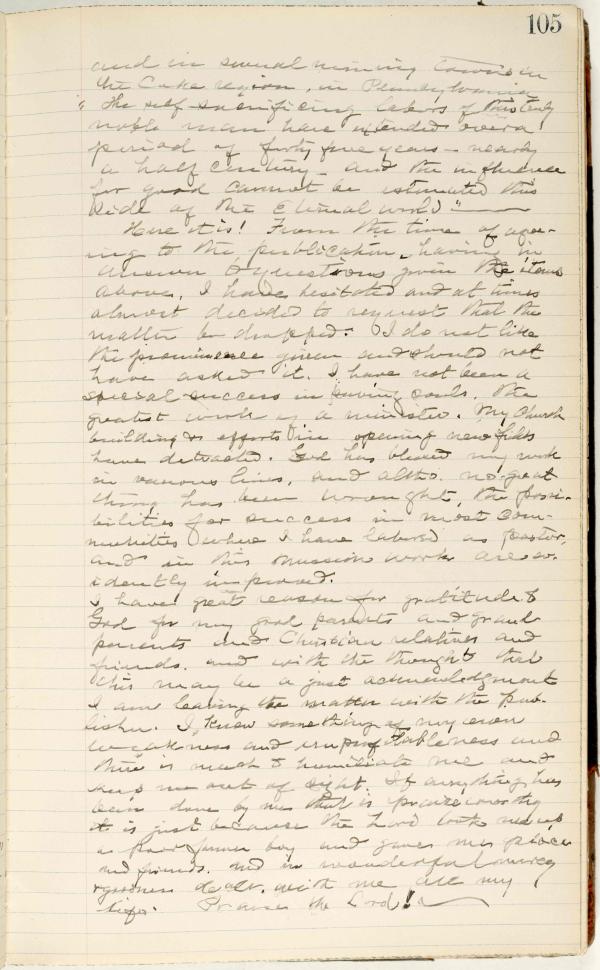 105
and in several mining towns in
the Coke region, in Pennsylvania
" The self sacrificing labors of this truly
noble man have extended over a
period of forty five years - nearly
a half century - and the influence
for good cannot be estimated this
side of the Eternal world "
Here it is! From the time of agree-
ing to the publication, having in
answer to questions given the items
above, I have hesitated and at times
almost decided to request that the
matter be dropped. I do not like
the prominence given and should not
have asked it. I have not been a
special success in saving souls, the
greatest work of a minister. My Church
building & efforts in opening new fields
have detracted. God has blessed my work
in various lines, and altho. no great
thing has been wrought, the possi-
bilities for success in most com-
munities where I have labored as pastor,
and in this mission work are ev-
idently improved.
I have great reason for gratitude to
God for my good parents and grand
parents and Christian relatives and
friends. and with the thought that
this may be a just acknowledgment
I am leaving the matter with the pub-
lisher. I know something of my own
weakness and unprofitableness and
there is much to humiliate me and
me out of sight. If anything has
been done by me that is praiseworthy
it is just because the Lord took me up
a poor farmer boy and gave me place
and friends. and in wonderful mercy
& goodness dealt with me all my
life. Praise the Lord!